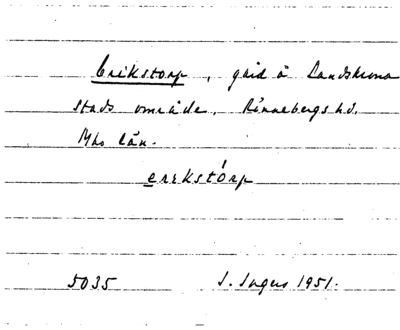 Erikstorp, gård å Landskrona
stads område. Rönnebergs hd.
Mhs län.
erikstórp
5035 S. Ingers 1951.